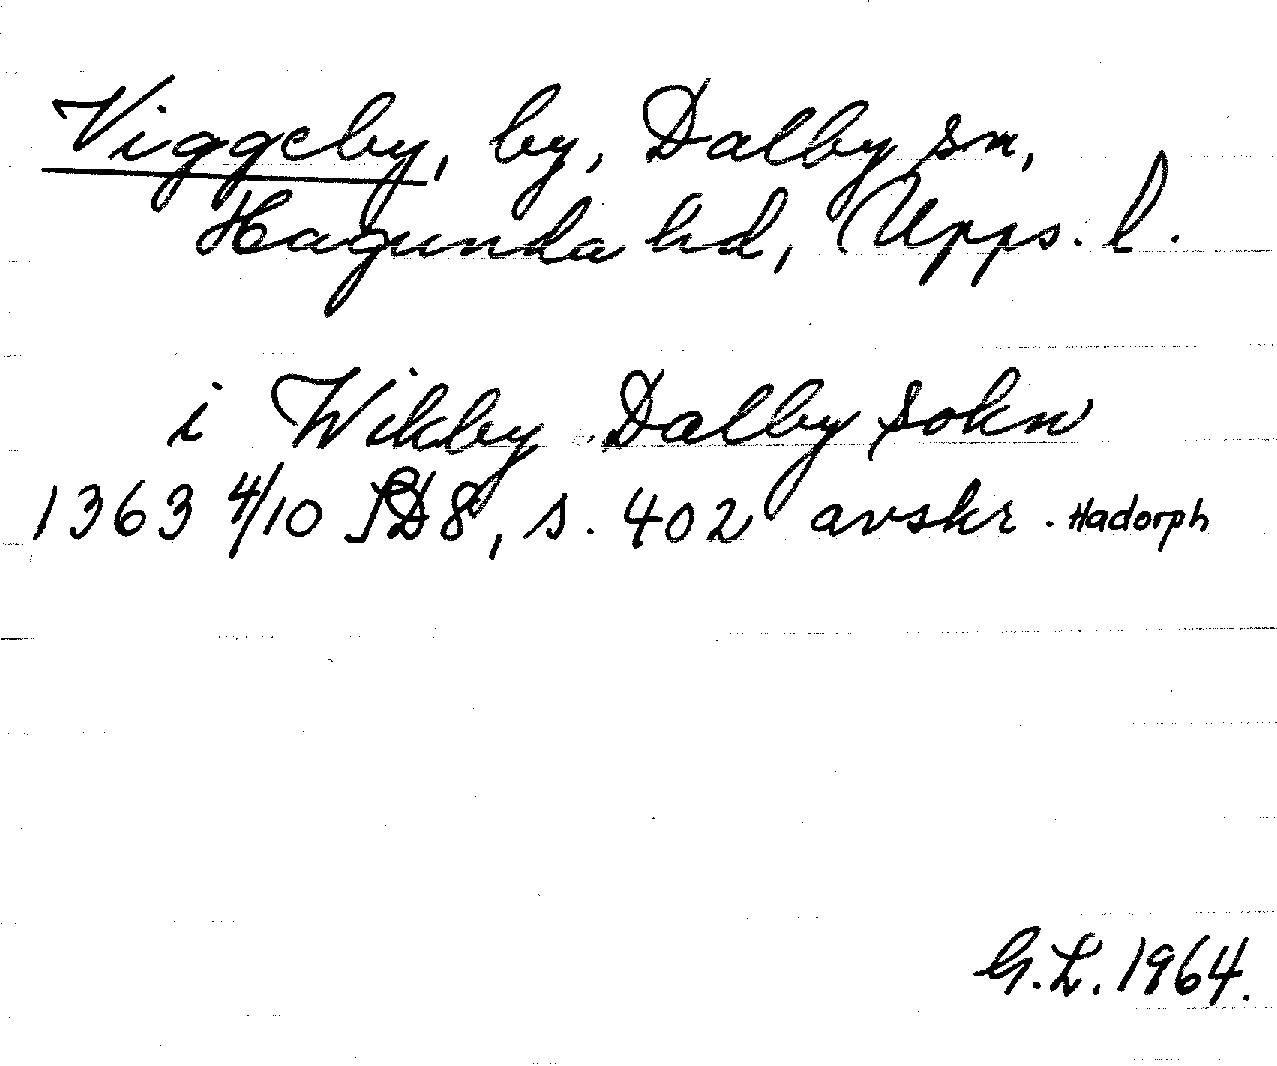 Viggeby, by, Dalby sn,
Hagunda hd, Upps. l.
i Wikby Dalby sokn
1363 4/10 SD8, s. 402 avskr. Hadorph
G.L. 1964.